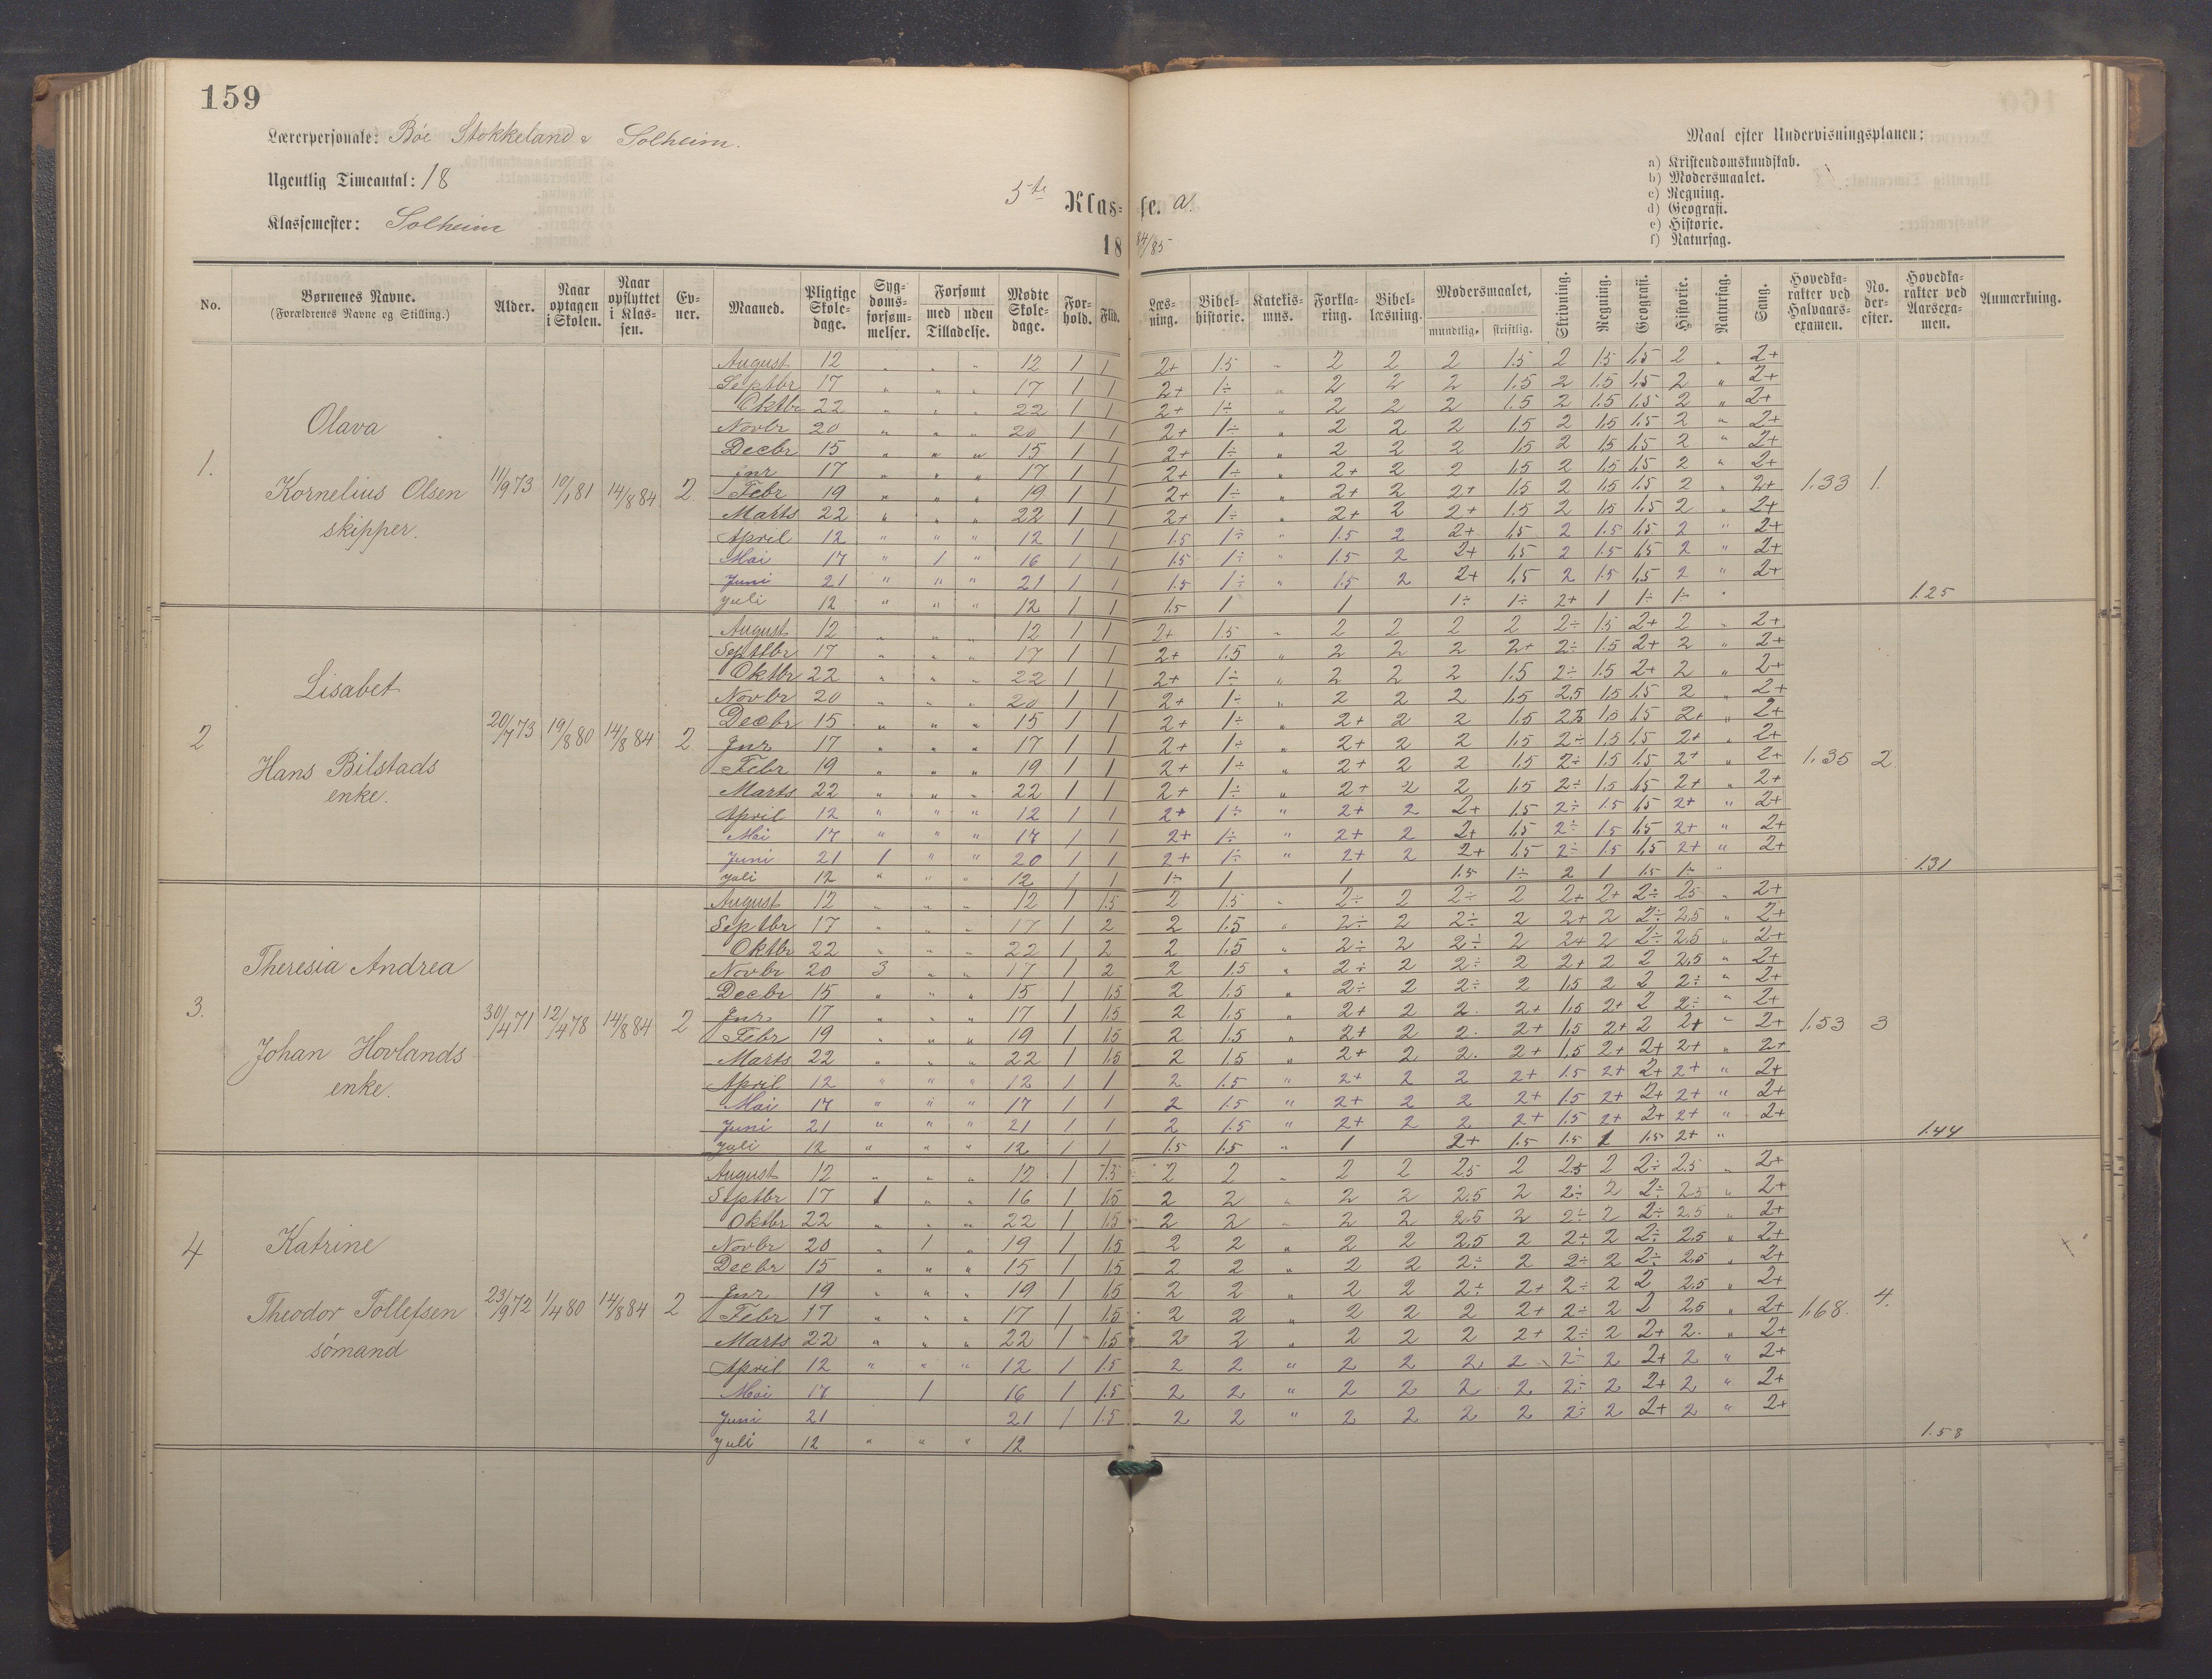 159
Lærerpersonale: Bøe Stokkeland & Solheim.
Ugentlig Timeantal: 18
Klassemester: Solheim
5te Klasse. a.
1884/85
Maal efter Undervisningsplanen:
a) Kristendomskundskab.
b) Modersmaalet.
c) Regning.
d) Geografi.
e) Historie.
f) Naturfag.
No. | Børnenes Navne. (Forældrenes Navne og Stilling.) | Alder. | Naar optagen i Skolen. | Naar opflyttet i Klassen. | Evner. | Maaned. | Pligtige Skoledage. | Sygdomsforsømmelser. | Forsømt med Tilladelse. | uden Tilladelse. | Mødte Skoledage. | Forhold. | Flid. | Læsning. | Bibelhistorie. | Katekismus. | Forklaring. | Bibellæsning. | Modersmaalet, mundtlig. | skriftlig. | Skrivning. | Regning. | Geografi. | Historie. | Naturfag. | Sang. | Hovedkarakter ved Halvaarsexamen. | No. derefter. | Hovedkarakter ved Aarsexamen. | Anmærkning.
1. Olava
Kornelius Olsen
skipper.
11/9 73 | 10/1 81 | 14/8 84 | 2
August 12 " " " 12 1 1 2+ 1.5 " 2 2 2 1.5 2 1.5 1.5 2 " 2+
Septbr 17 " " " 17 1 1 2+ 1÷ " 2 2 2 1.5 2 1.5 1.5 2 " 2+
Oktbr 22 " " " 22 1 1 2+ 1÷ " 2 2 2 1.5 2 1.5 1.5 2 " 2+
Novbr 20 " " " 20 1 1 2+ 1÷ " 2 2 2 1.5 2 1.5 1.5 2 " 2+
Decbr 15 " " " 15 1 1 2+ 1÷ " 2 2 2 1.5 2 1.5 1.5 2 " 2+
Jnr 17 " " " 17 1 1 2+ 1÷ " 2+ 2 2 1.5 2 1.5 1.5 2 " 2+
Febr 19 " " " 19 1 1 2+ 1÷ " 2+ 2 2+ 1.5 2 1.5 1.5 2 " 2+ 1.33 1.
Marts 22 " " " 22 1 1 2+ 1÷ " 2+ 2 2+ 1.5 2 1.5 1.5 2 " 2+
April 12 " " " 12 1 1 1.5 1÷ " 1.5 2 2+ 1.5 2 1.5 1.5 2 " 2+
Mai 17 " 1 " 16 1 1 1.5 1÷ " 1.5 2 2+ 1.5 2 1.5 1.5 2 " 2+
Juni 21 " " " 21 1 1 1.5 1÷ " 1.5 2 2+ 1.5 2 1.5 1.5 2 " 2+
Juli 12 " " " 12 1 1 1.5 1 1 1÷ 1÷ 2+ 1 1÷ 1÷ " 1.25
2 Lisabet
Hans Bilstads
enke.
20/7 73 | 19/8 80 | 14/8 84 | 2
August 12 " " " 12 1 1 2+ 1.5 " 2 2 2 2 2÷ 1.5 2+ 2 " 2+
Septbr 17 " " " 17 1 1 2+ 1.5 " 2 2 2 2+ 2÷ 1.5 2+ 2 " 2+
Oktbr 22 " " " 22 1 1 2+ 1÷ " 2 2 2 1.5 2÷ 1.5 2+ 2 " 2+
Novbr 20 " " " 20 1 1 2+ 1÷ " 2 2 2 1.5 2.5 1.5 1.5 2 " 2+
Decbr 15 " " " 15 1 1 2+ 1÷ " 2+ 2 2 1.5 2.5 1.5 1.5 2+ " 2+
Jnr 17 " " " 17 1 1 2+ 1÷ " 2+ 2 2 1.5 2÷ 1.5 1.5 2+ " 2+
Febr 19 " " " 19 1 1 2+ 1÷ " 2+ 2 2 1.5 2÷ 1.5 1.5 2+ " 2+ 1.35 2.
Marts 22 " " " 22 1 1 2+ 1÷ " 2+ 2 2 1.5 2÷ 1.5 1.5 2+ " 2+
April 12 " " " 12 1 1 2+ 1÷ " 2+ 2 2+ 1.5 2÷ 1.5 1.5 2+ " 2+
Mai 17 " " " 17 1 1 2+ 1÷ " 2+ 2 2+ 1.5 2÷ 1.5 1.5 2+ " 2+
Juni 21 1 " " 20 1 1 2+ 1÷ " 2+ 2 2+ 1.5 2÷ 1.5 1.5 2+ " 2+
Juli 12 " " " 12 1 1 1÷ 1 1 1.5 1÷ 2 1 1.5 1÷ " 1.31
3. Theresia Andrea
Johan Hovlands
enke.
30/4 71 | 12/4 78 | 14/8 84 | 2
August 12 " " " 12 1 1.5 2 1.5 " 2÷ 2 2÷ 2 2+ 2+ 2÷ 2.5 " 2+
Septbr 17 " " " 17 1 2 2 1.5 " 2÷ 2 2÷ 2 2+ 2 2÷ 2.5 " 2+
Oktbr 22 " " " 22 1 2 2 1.5 " 2÷ 2 2÷ 2 2+ 2 2÷ 2.5 " 2+
Novbr 20 3 " " 17 1 2 2 1.5 " 2÷ 2 2÷ 2 2+ 2 2 2.5 " 2+
Decbr 15 " " " 15 1 1.5 2 1.5 " 2÷ 2 2÷ 2 1.5 2 2 2÷ " 2+
Jnr 17 " " " 17 1 1.5 2 1.5 " 2+ 2 2 2+ 1.5 2+ 2 2÷ " 2+
Febr 19 " " " 19 1 1.5 2 1.5 " 2+ 2 2 2+ 1.5 2+ 2 2+ " 2+ 1.53 3
Marts 22 " " " 22 1 1.5 2 1.5 " 2+ 2 2 2+ 1.5 2+ 2+ 2+ " 2+
April 12 " " " 12 1 1 2 1.5 " 2+ 2 2 2+ 1.5 2+ 2+ 2+ " 2+
Mai 17 " " " 17 1 1 2 1.5 " 2+ 2 2 2+ 1.5 2+ 2+ 2+ " 2+
Juni 21 " " " 21 1 1 2 1.5 " 2+ 2 2 2+ 1.5 2+ 2+ 2+ " 2+
Juli 12 " " " 12 1 1 1.5 1.5 " 1 2+ 1.5 1.5 1 1.5 2+ " 1.44
4 Katrine
Theodor Tollefsen
sømand
23/9 72 | 1/4 80 | 14/8 84 | 2
August 12 " " " 12 1 1.5 2 2 " 2 2 2.5 2 2.5 2 2÷ 2.5 " 2+
Septbr 17 1 " " 16 1 1.5 2 2 " 2 2 2.5 2 2÷ 2 2÷ 2.5 " 2+
Oktbr 22 " " " 22 1 1.5 2 2 " 2 2 2.5 2 2÷ 2 2÷ 2.5 " 2+
Novbr 20 " 1 " 19 1 1.5 2 2 " 2 2 2.5 2 2÷ 2 2÷ 2.5 " 2+
Decbr 15 " " " 15 1 1.5 2 2 " 2 2 2÷ 2 2÷ 2 2÷ 2.5 " 2+
Jnr 19 " " " 19 1 1.5 2 2 " 2 2 2÷ 2+ 2÷ 2 2 2.5 " 2+
Febr 17 " " " 17 1 1.5 2 2 " 2 2 2 2+ 2÷ 2 2 2.5 " 2+ 1.68. 4.
Marts 22 " " " 22 1 1.5 2 2 " 2 2 2 2+ 2÷ 2 2+ 2 " 2+
April 12 " " " 12 1 1.5 2 2 " 2 2 2 2 2÷ 2 2+ 2 " 2+
Mai 17 1 16 1 1.5 2 2 " 2 2 2 2 2÷ 2 2+ 2 " 2+
Juni 21 21 1 1.5 2 2 " 2 2 2 2 2÷ 2 2+ 2 " 2+
Juli 12 " " " 12 1.58